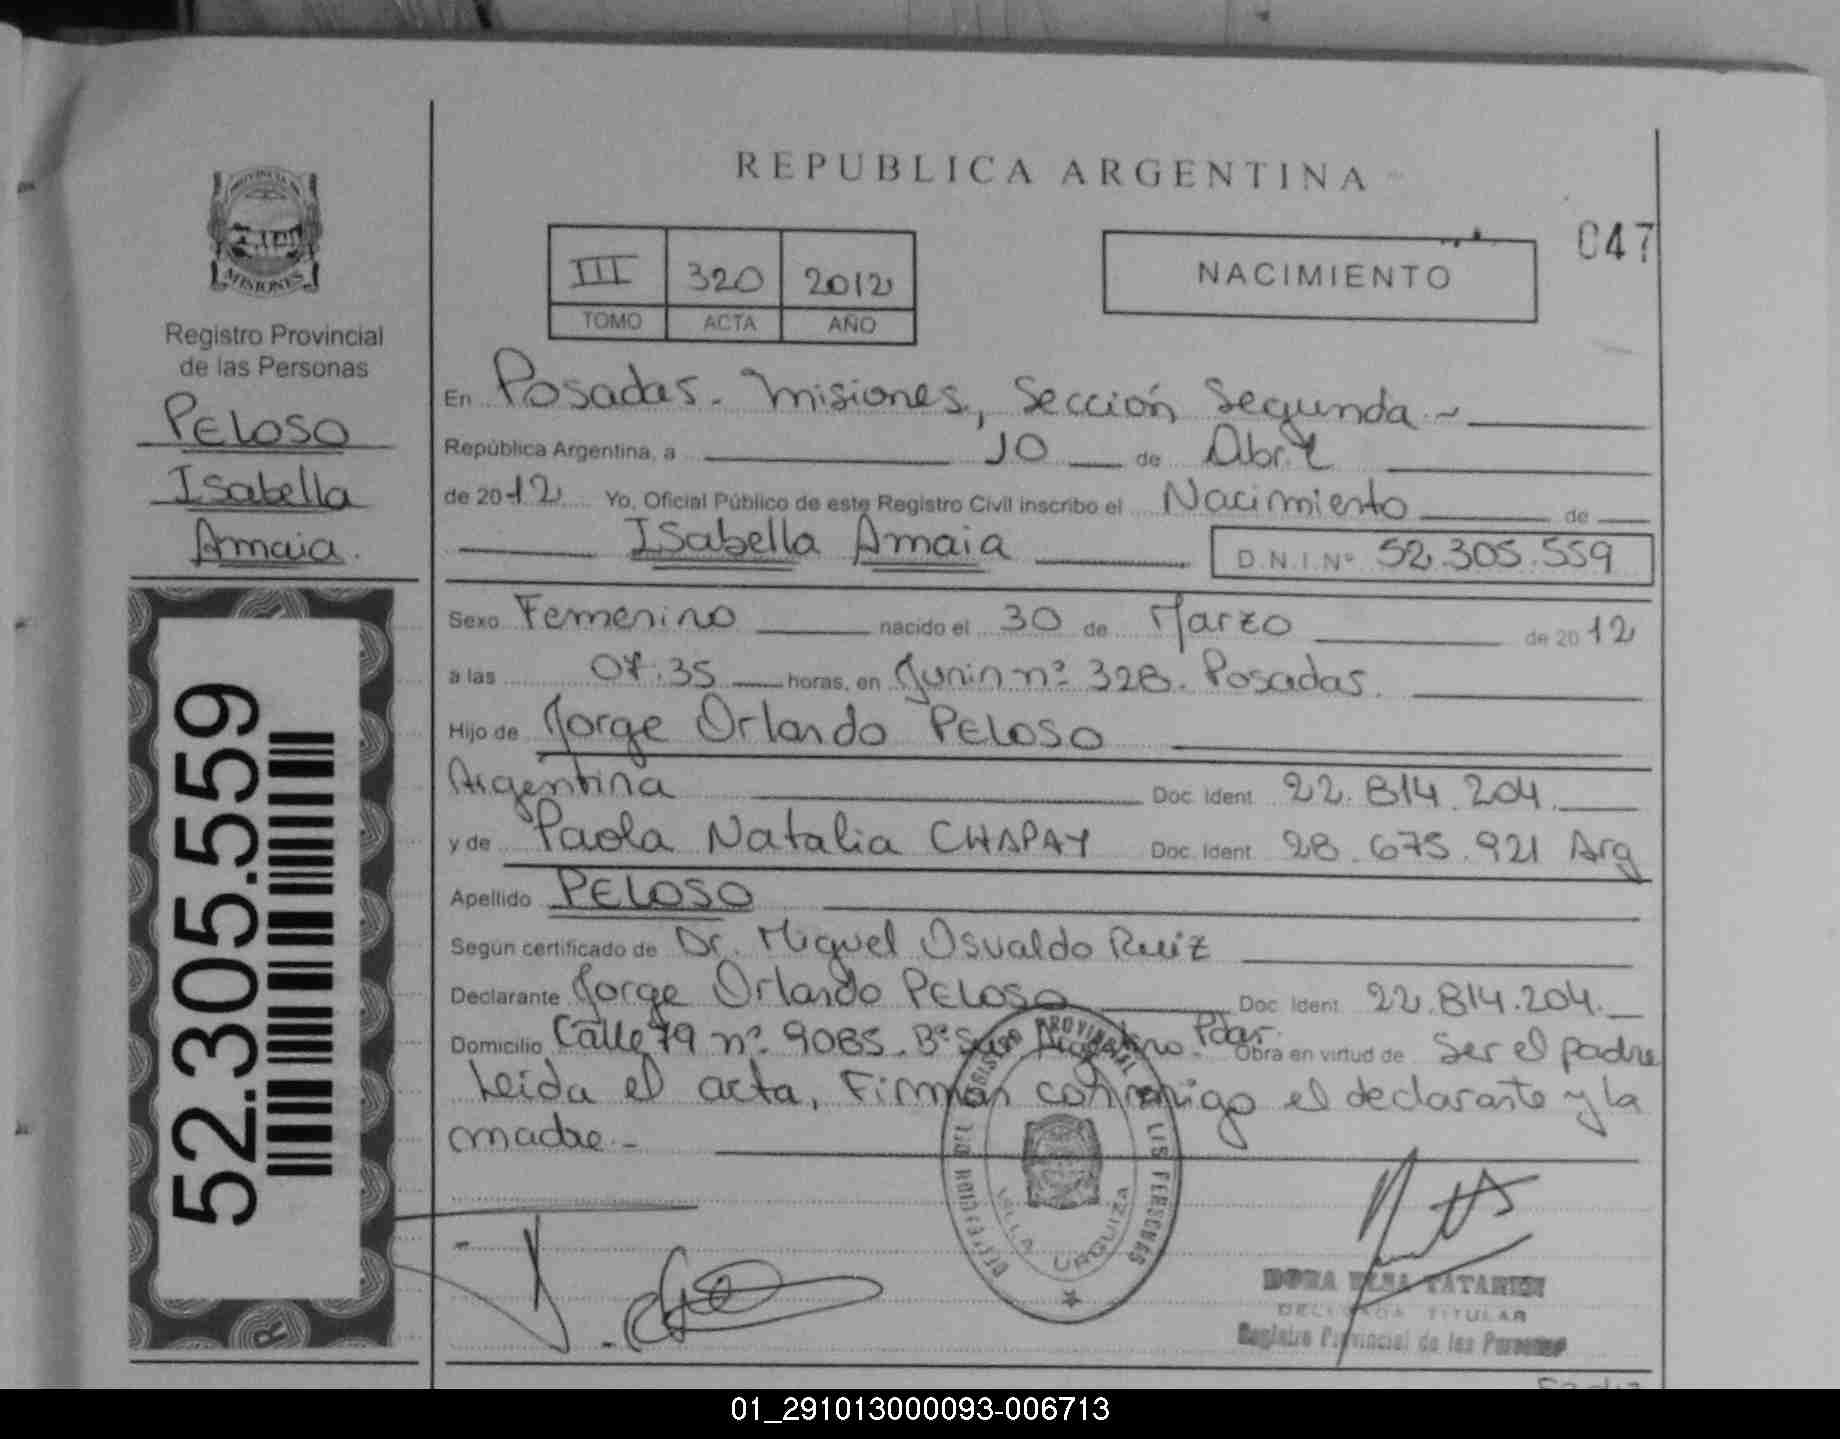 REPUBLICA ARGENTINA
047
III 320 2012
TOMO ACTA AÑO
NACIMIENTO
MISIONES
Registro Provincial
de las Personas
PELOSO
Isabella
Amaia.
52.305.559
En Posadas - Misiones, Sección Segunda.~
República Argentina, a 10 de Abril
de 2012 Yo, Oficial Público de este Registro Civil inscribo el Nacimiento de
Isabella Amaia D.N.I.Nº 52.305.559
Sexo Femenino nacido el 30 de Marzo de 2012
a las 07:35 horas, en Junin nº 328. Posadas.
Hijo de Jorge Orlando PELOSO
Argentina Doc. Ident. 22.814.204.
y de Paola Natalia CHAPAY Doc. Ident. 28.675.921 Arg
Apellido PELOSO
Según certificado de Dr. Miguel Osvaldo Ruiz
Declarante Jorge Orlando PELOSO Doc. Ident. 22.814.204.
Domicilio Calle 79 nº 9085. Bº Pdas. Obra en virtud de Ser el padre
Leida el acta, Firman conmigo el declarante y la
madre.-
REGISTRO PROVINCIAL DE LAS PERSONAS
VILLA URQUIZA
DORA ELSA
DELEGADA TITULAR
Registro Provincial de las Personas
01_291013000093-006713